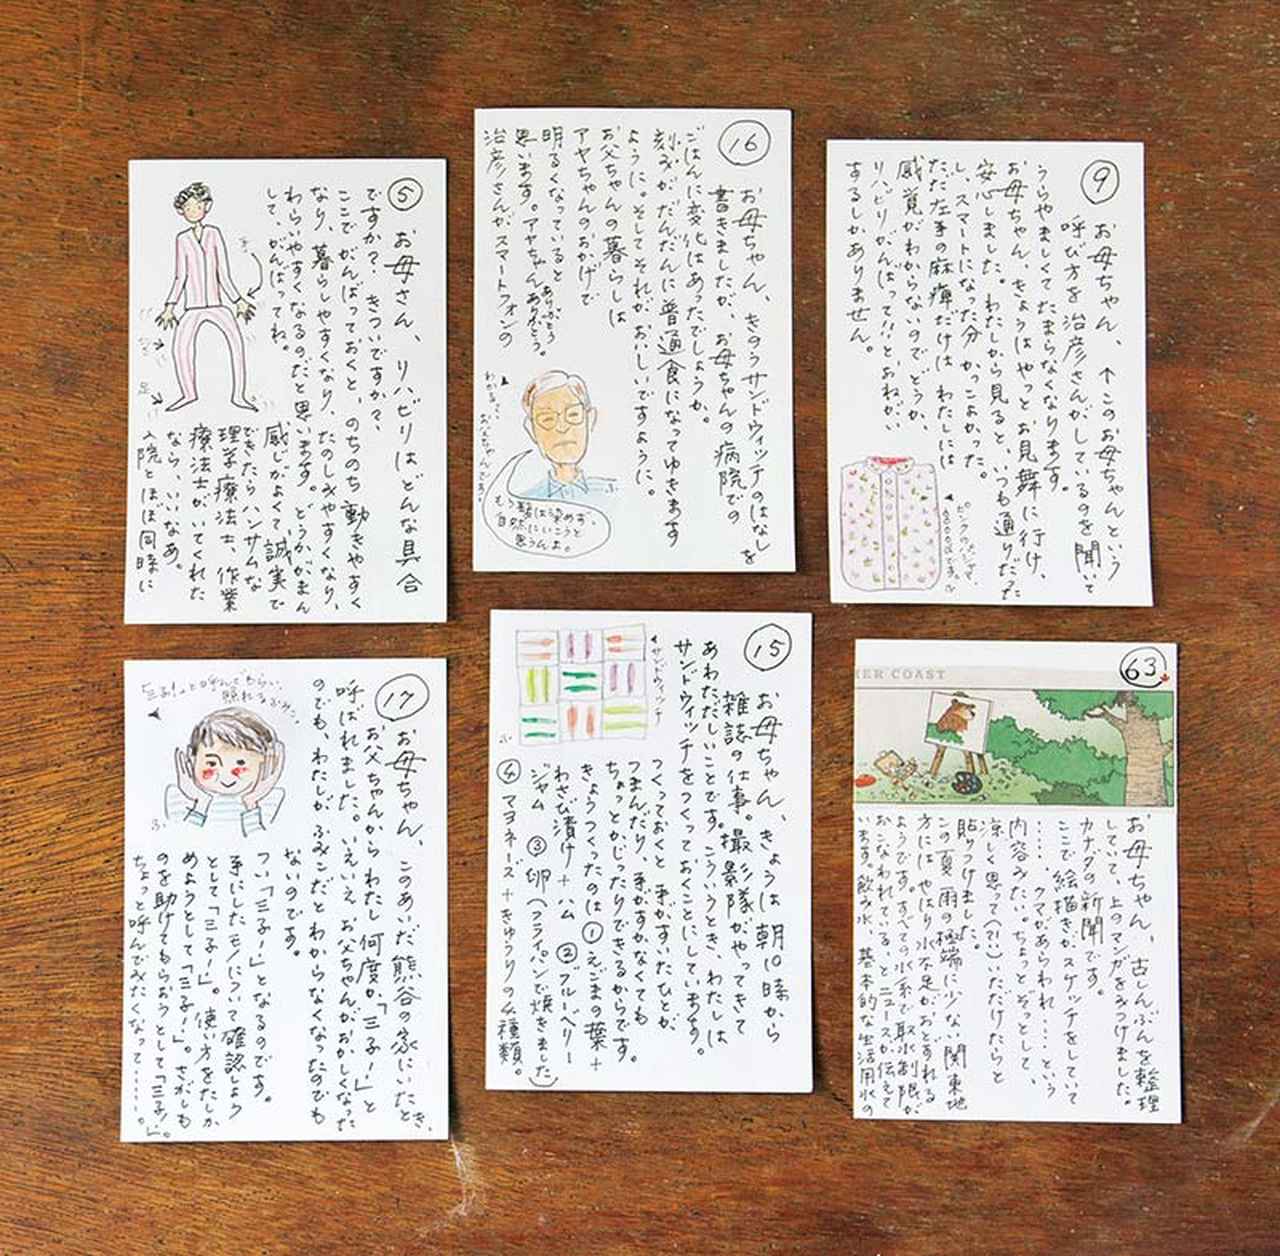 ⑤
お母さん、リハビリはどんな具合
ですか？ きついですか？
ここでがんばっておくと、のちのち動きやすく
なり、暮らしやすくなり、たのしみやすくなり、
わらいやすくなるのだと思います。どうかがまん
して、がんばってね。
感じがよくて、誠実で
できたらハンサムな
理学療法士、作業
療法士がいてくれた
なら、いいなあ。
入院とほぼ同時に
手
足
⑯
お母ちゃん、きのうサンドウィッチのはなしを
書きましたが、お母ちゃんの病院での
ごはんに変化はあったでしょうか。
刻みがだんだんに普通食になってゆきます
ように。そしてそれがおいしいですように。
お父ちゃんの暮らしは
アヤちゃんのおかげで
明るくなっていると
思います。アヤちゃんありがとう。
ありがとう
治彦さんがスマートフォンの
わかるって、
お父ちゃんですよ
もう髪は染めず、
自然にいこうと
思うんよ。
ふ
⑨
お母ちゃん、↑このお母ちゃんという
呼び方を治彦さんがしているのを聞いて
うらやましくてたまらなくなります。
お母ちゃん、きょうはやっとお見舞に行け、
安心しました。わたしから見ると、いつも通りだった
し、スマートになった分かっこよかった。
ただ左手の麻痺だけは、わたしには
感覚がわからないのでどうか、
リハビリがんばって!!とおねがい
するしかありません。
ピンクのパジャマ
⑰
お母ちゃん、このあいだ熊谷の家にいたとき、
お父ちゃんからわたし何度か、「三子！」と
呼ばれました。いえいえ、お父ちゃんがおかしくなった
のでも、わたしがふみこだとわからなくなったのでも
ないのです。
つい「三子！」となるのです。
手にしたモノについて確認しよう
として「三子！」。使い方をたしか
めようとして「三子！」。さがしもの
のを助けてもらおうとして「三子！」。
ちょっと呼んでみたくなって……。
「三子！」と呼んでもらい、
照れるふみこ。
ふ
⑮
お母ちゃん、きょうは朝10時から
雑誌の仕事。撮影隊がやってきて
あわただしいことです。こういうとき、わたしは
サンドウィッチをつくっておくことにしています。
つくっておくと、手がすいたひとが
つまんだり、手がすかなくても
ちょっとかじったりできるからです。
きょうつくったのは①えごまの葉＋
わさび漬け＋ハム ②ブルーベリー
ジャム ③卵（フライパンで焼きました）
④マヨネーズ＋きゅうりの4種類。
サンドウィッチ
ふ
63
HER COAST
お母ちゃん、古しんぶんを整理
していて、上のマンガをみつけました。
カナダの新聞です。
ここで絵描きがスケッチをしていて
……、クマがあらわれ……という
内容みたい。ちょっとぞっとして、
涼しく思って(?!)いただけたらと
貼りつけました。
この夏、雨の極端に少ない関東地
方にはやはり水不足がおとずれる
ようです。すべての水系で取水制限が
おこなわれている、とニュースが伝えて
います。飲み水、基本的な生活用水の